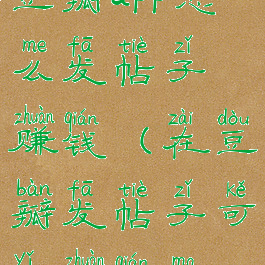 豆瓣app怎
me fā tiè zǐ
么发帖子
zhuàn qián zài dòu
赚钱（在豆
bàn fā tiè zǐ kě
瓣发帖子可
yǐ zhuàn qián ma